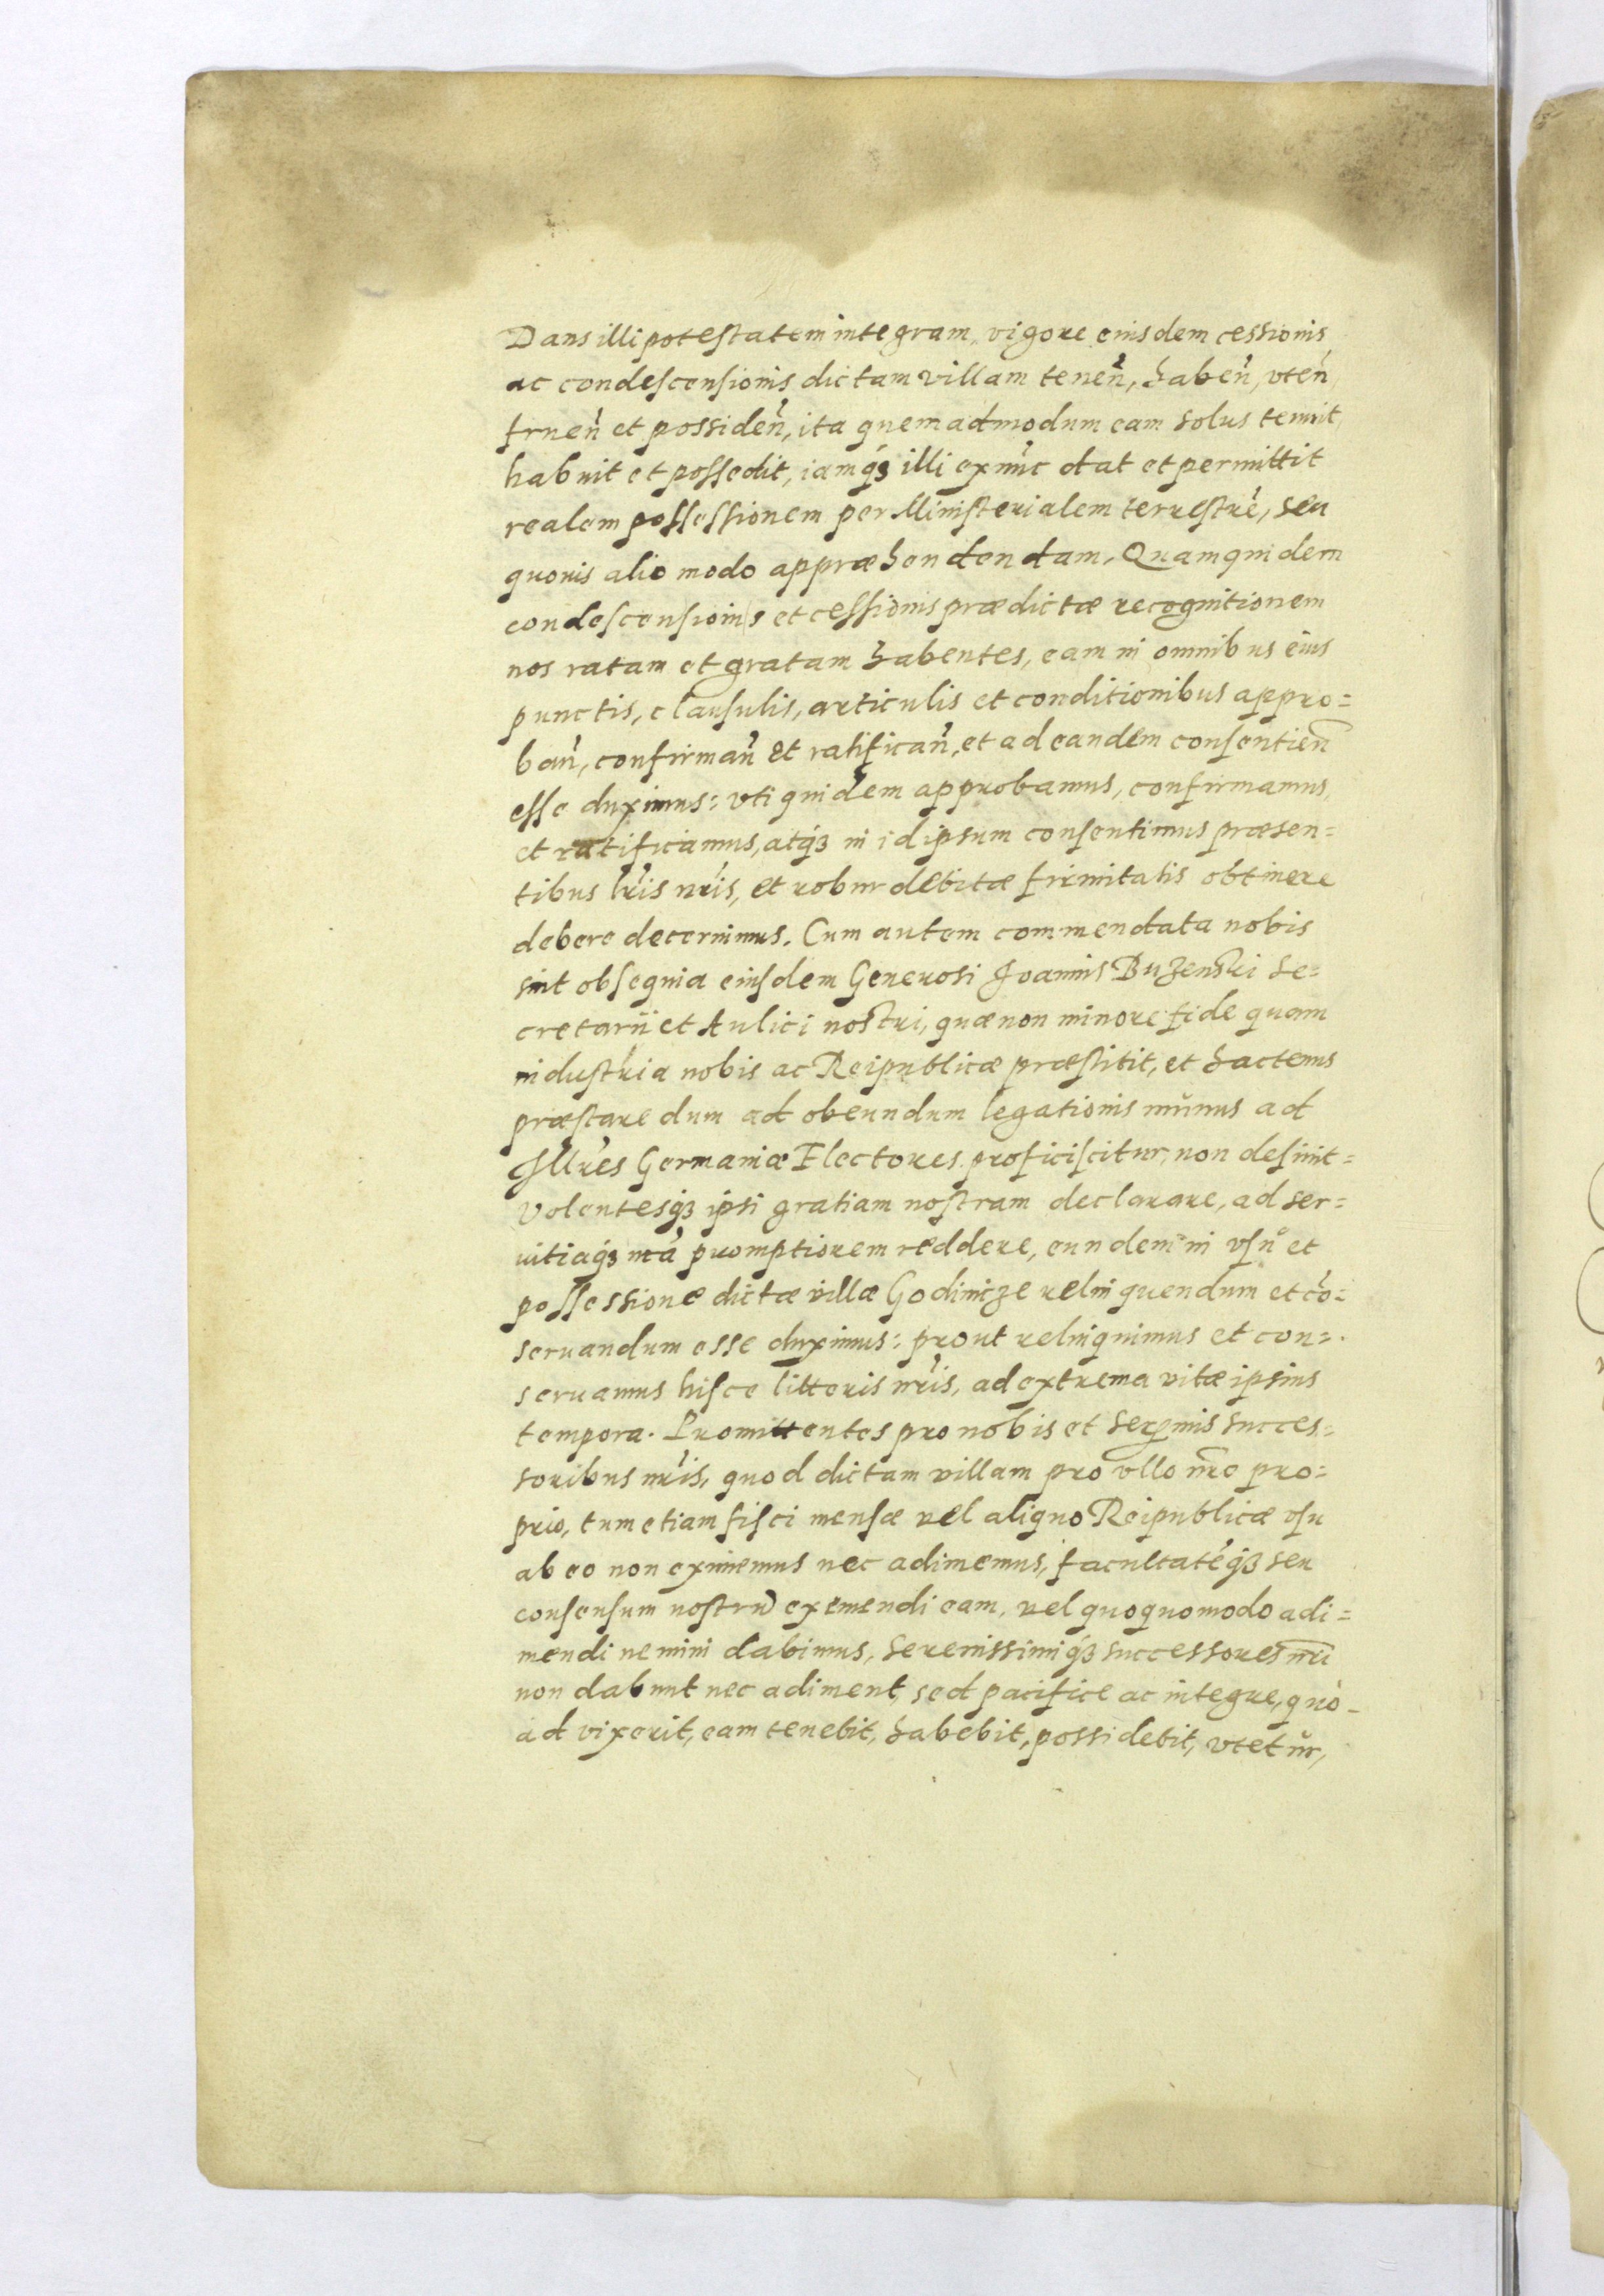 Dans illi potestatem integram, vigore eiusdem cessionis
ac condescensionis dictam villam teneñ, habeñ, vteñ,
frueñ et possideñ, ita quemadmodum eam solus tenuit,
habuit et possedit, iamq́ꝫ illi exnunc dat et permittit
realem possessionem per Ministerialem terrestrẽ, seu
quouis alio modo appræhendendam. Quamquidem
condescensionis et cessionis prædictæ recognitionem
nos ratam et gratam habentes, eam in omnibus eius
punctis, clausulis, articulis et conditionibus appro=
bañ, confirmañ et ratificañ, et ad eandem consentieñ
esse duximus: vti quidem approbamus, confirmamus,
et ratificamus, atq́ꝫ in id ipsum consentimus præsen=
tibus lr̃is nr̃is, et robur debitæ firmitatis obtinere
debere decernimus. Cum autem commendata nobis
sint obsequia eiusdem Generosi Joannis Buzenski Se=
cretarii et Aulici nostri, quæ non minore fide quam
industria nobis ac Reipublicæ præstitit, et hactenus
præstare dum ad obeundum legationis munus ad
Illr̃es Germaniæ Electores proficiscitur, non desinit=
Volentesq́ꝫ ipsi gratiam nostram declarare, ad ser=
uitiaq́ꝫ nr̃a promptiorem reddere, eundem in vsu et
possessione dictæ villæ Godinicze relinquendum et cõ=
seruandum esse duximus: prout relinquimus et con=
seruamus hisce litteris nr̃is, ad extrema vitæ ipsius
tempora. Promittentes pro nobis et Serꝫmis Succes=
soribus nr̃is, quod dictam villam pro vllo nr̃o pro=
prio, tum etiam fisci mensæ vel aliquo Reipublicæ vsu
ab eo non eximemus nec adimemus, facultatẽq́ꝫ seu
consensum nostrũ exemendi eam, vel quoquomodo adi=
mendi nemini dabimus, Serenissimiq́ꝫ successores nr̃i
non dabunt nec adiment, sed pacifice ac integre, quo-
ad vixerit, eam tenebit, habebit, possidebit, vtetur,